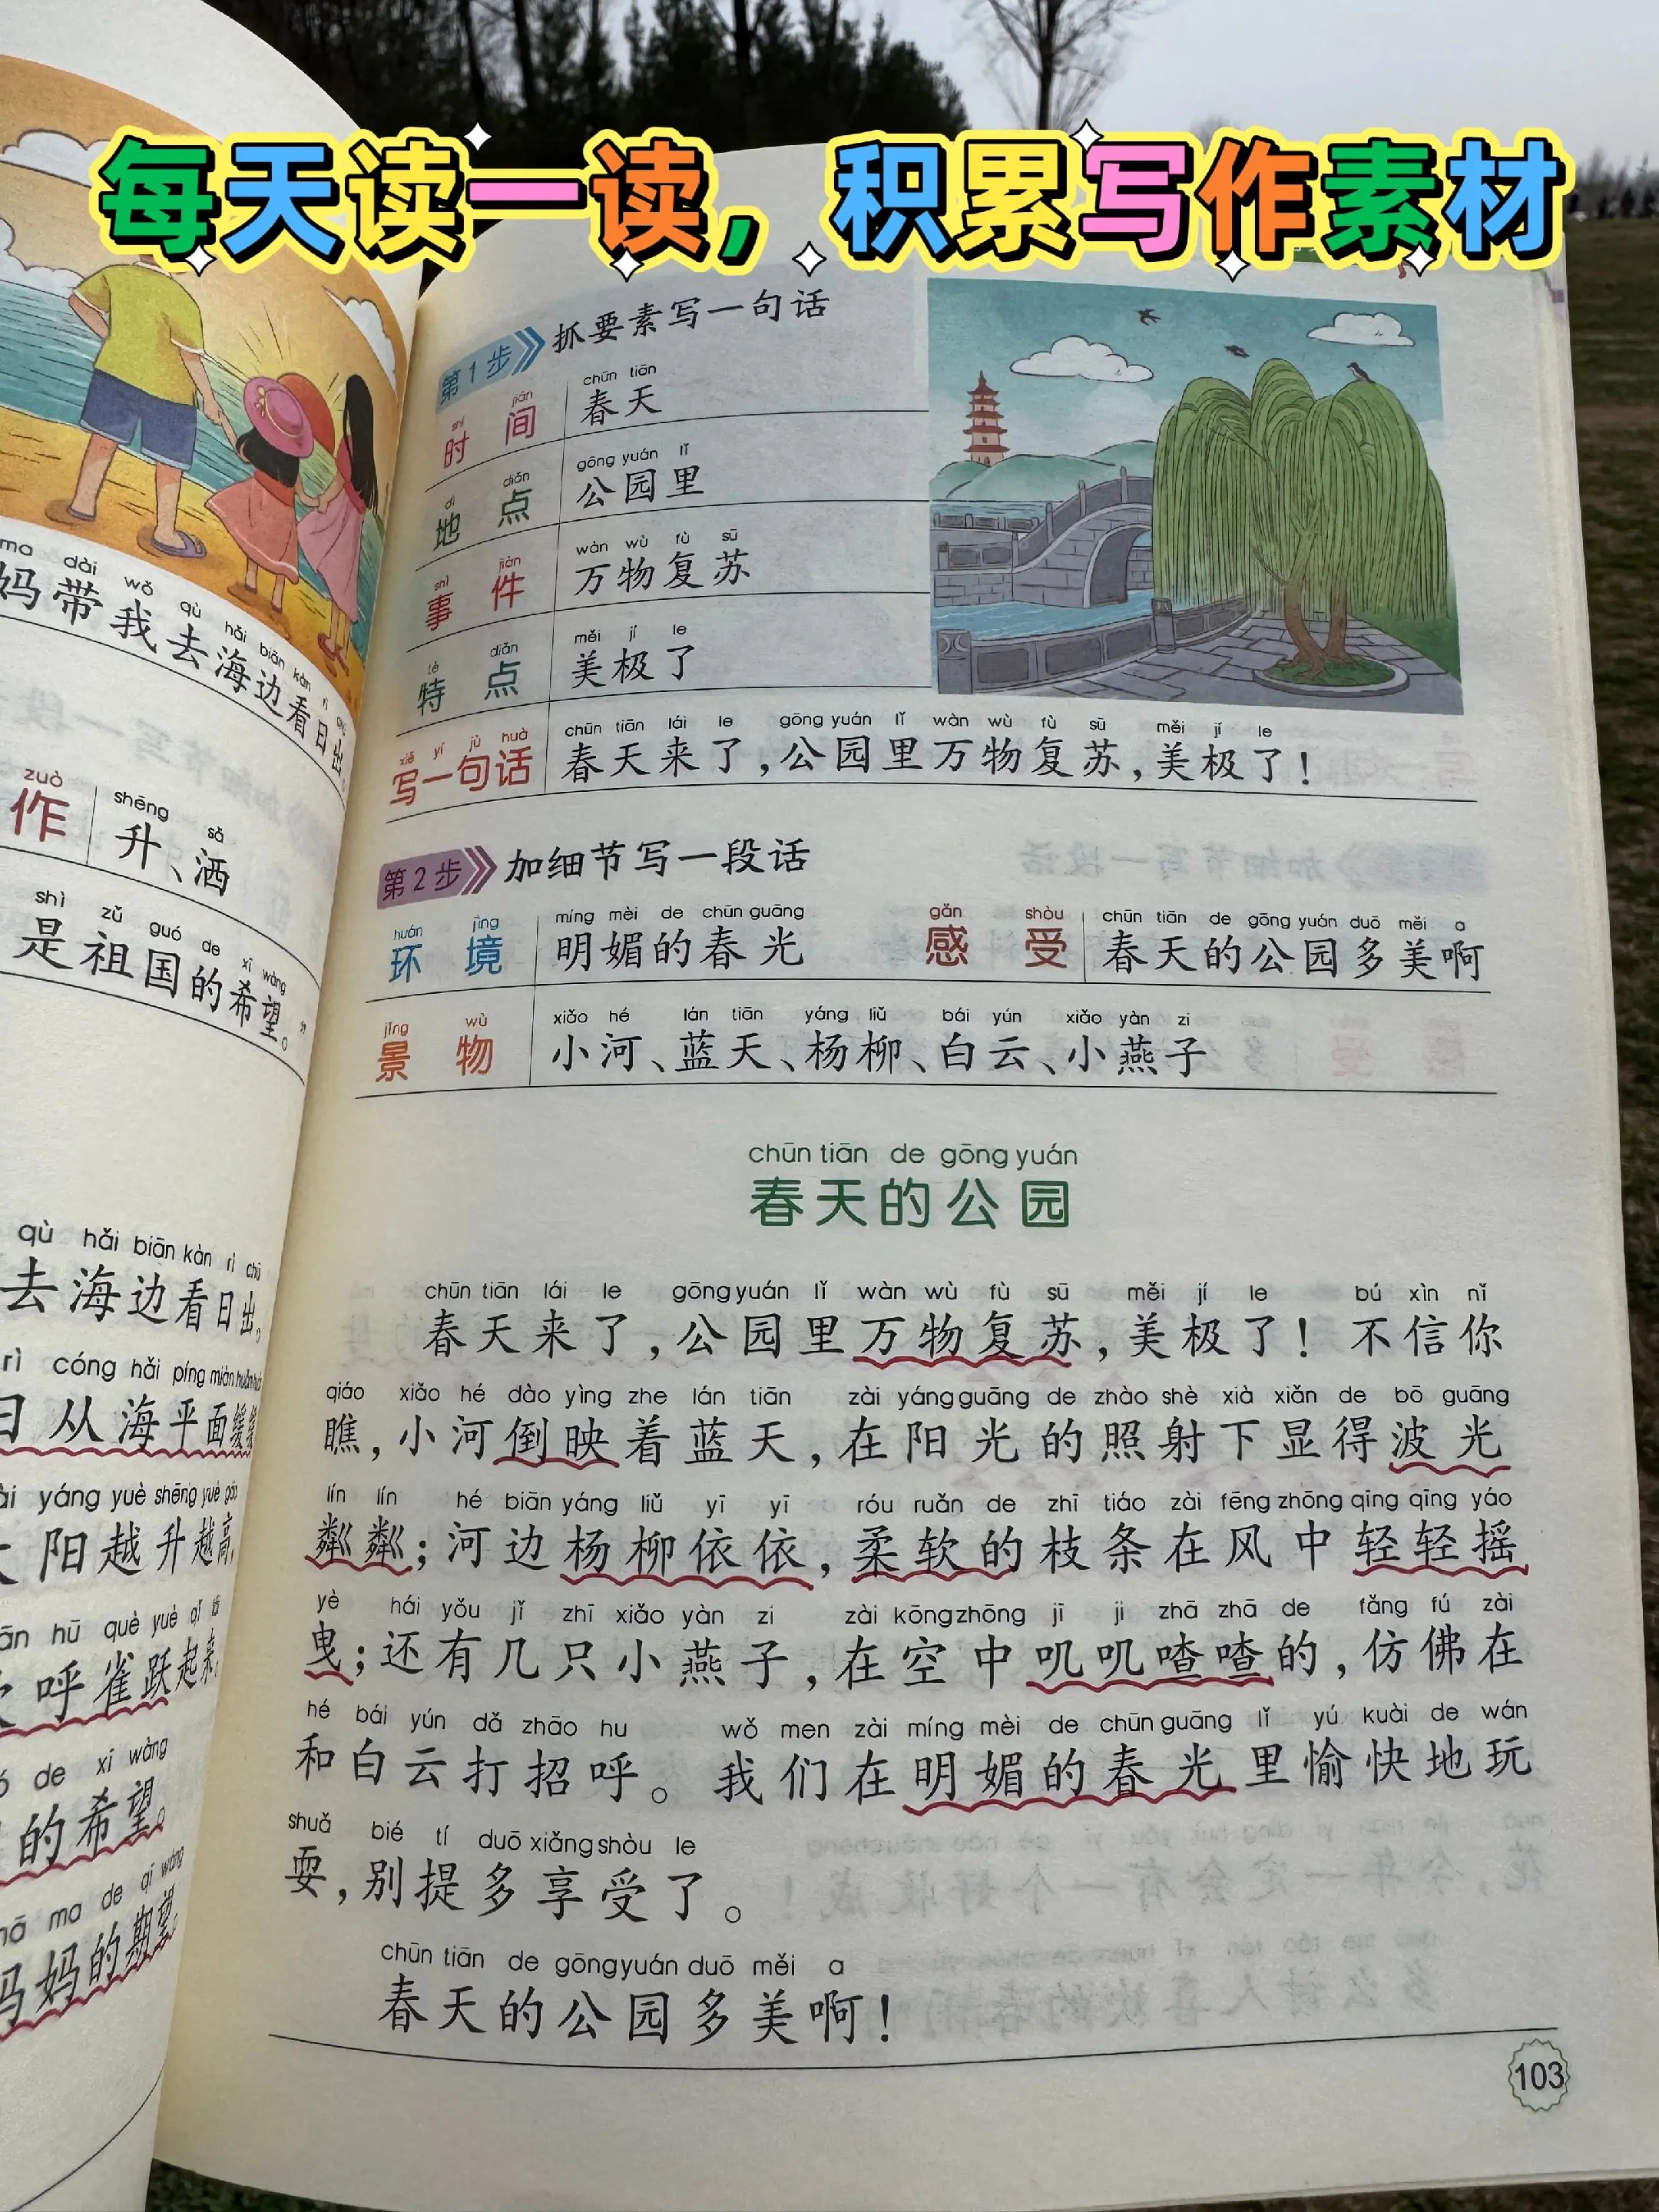 每天读一读，积累写作素材
妈带我去海边看日出
zuò shēng sǎ
作 升、洒
shì zǔ guó de xī wàng
是祖国的希望。
qù hǎi biān kàn rì chū
去海边看日出。
rì cóng hǎi píng miàn
日从海平面缓缓
yáng yuè shēng yuè gāo
阳越升越高，
hū què yuè qǐ
呼雀跃起来，
de xī wàng
的希望。
ma de qī wàng
妈妈的期望。
第1步 抓要素写一句话
shí jiān chūn tiān
时间 春天
dì diǎn gōng yuán lǐ
地点 公园里
shì jiàn wàn wù fù sū
事件 万物复苏
tè diǎn měi jí le
特点 美极了
xiě yí jù huà chūn tiān lái le gōng yuán lǐ wàn wù fù sū měi jí le
写一句话 春天来了，公园里万物复苏，美极了！
第2步 加细节写一段话
huán jìng míng mèi de chūn guāng gǎn shòu chūn tiān de gōng yuán duō měi a
环境 明媚的春光 感受 春天的公园多美啊
jǐng wù xiǎo hé lán tiān yáng liǔ bái yún xiǎo yàn zi
景物 小河、蓝天、杨柳、白云、小燕子
chūn tiān de gōng yuán
春天的公园
chūn tiān lái le gōng yuán lǐ wàn wù fù sū měi jí le bú xìn nǐ
春天来了，公园里万物复苏，美极了！不信你
qiáo xiǎo hé dào yìng zhe lán tiān zài yáng guāng de zhào shè xià xiǎn de bō guāng
瞧，小河倒映着蓝天，在阳光的照射下显得波光
lín lín hé biān yáng liǔ yī yī róu ruǎn de zhī tiáo zài fēng zhōng qīng qīng yáo
粼粼；河边杨柳依依，柔软的枝条在风中轻轻摇
yè hái yǒu jǐ zhī xiǎo yàn zi zài kōng zhōng jī ji zhā zhā de fǎng fú zài
曳；还有几只小燕子，在空中叽叽喳喳的，仿佛在
hé bái yún dǎ zhāo hu wǒ men zài míng mèi de chūn guāng lǐ yú kuài de wán
和白云打招呼。我们在明媚的春光里愉快地玩
shuǎ bié tí duō xiǎng shòu le
耍，别提多享受了。
chūn tiān de gōng yuán duō měi a
春天的公园多美啊！
103